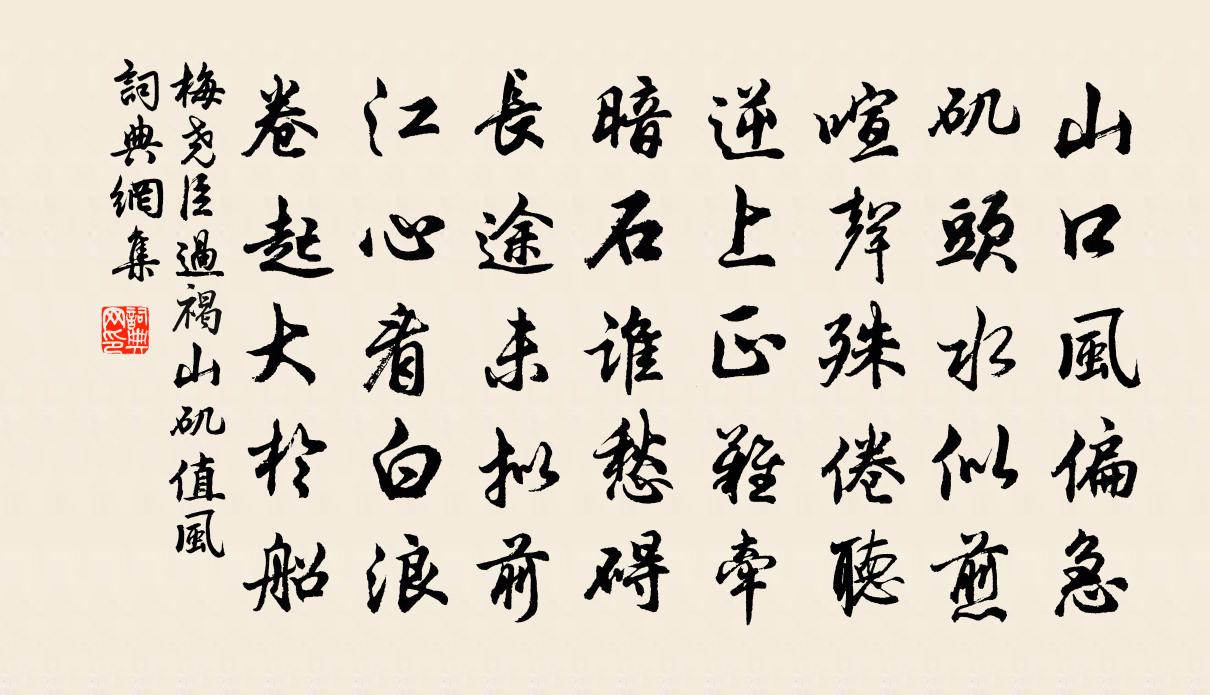 山口風偏急
矶頭水似煎
喧聲殊倦聽
逆上正難牽
暗石誰愁碍
長途未拟前
江心看白浪
卷起大於船
梅尧臣過褐山矶值風
詞典網集
詞典网印